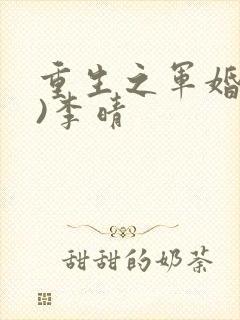 重生之军婚
)李晴
甜甜的奶茶